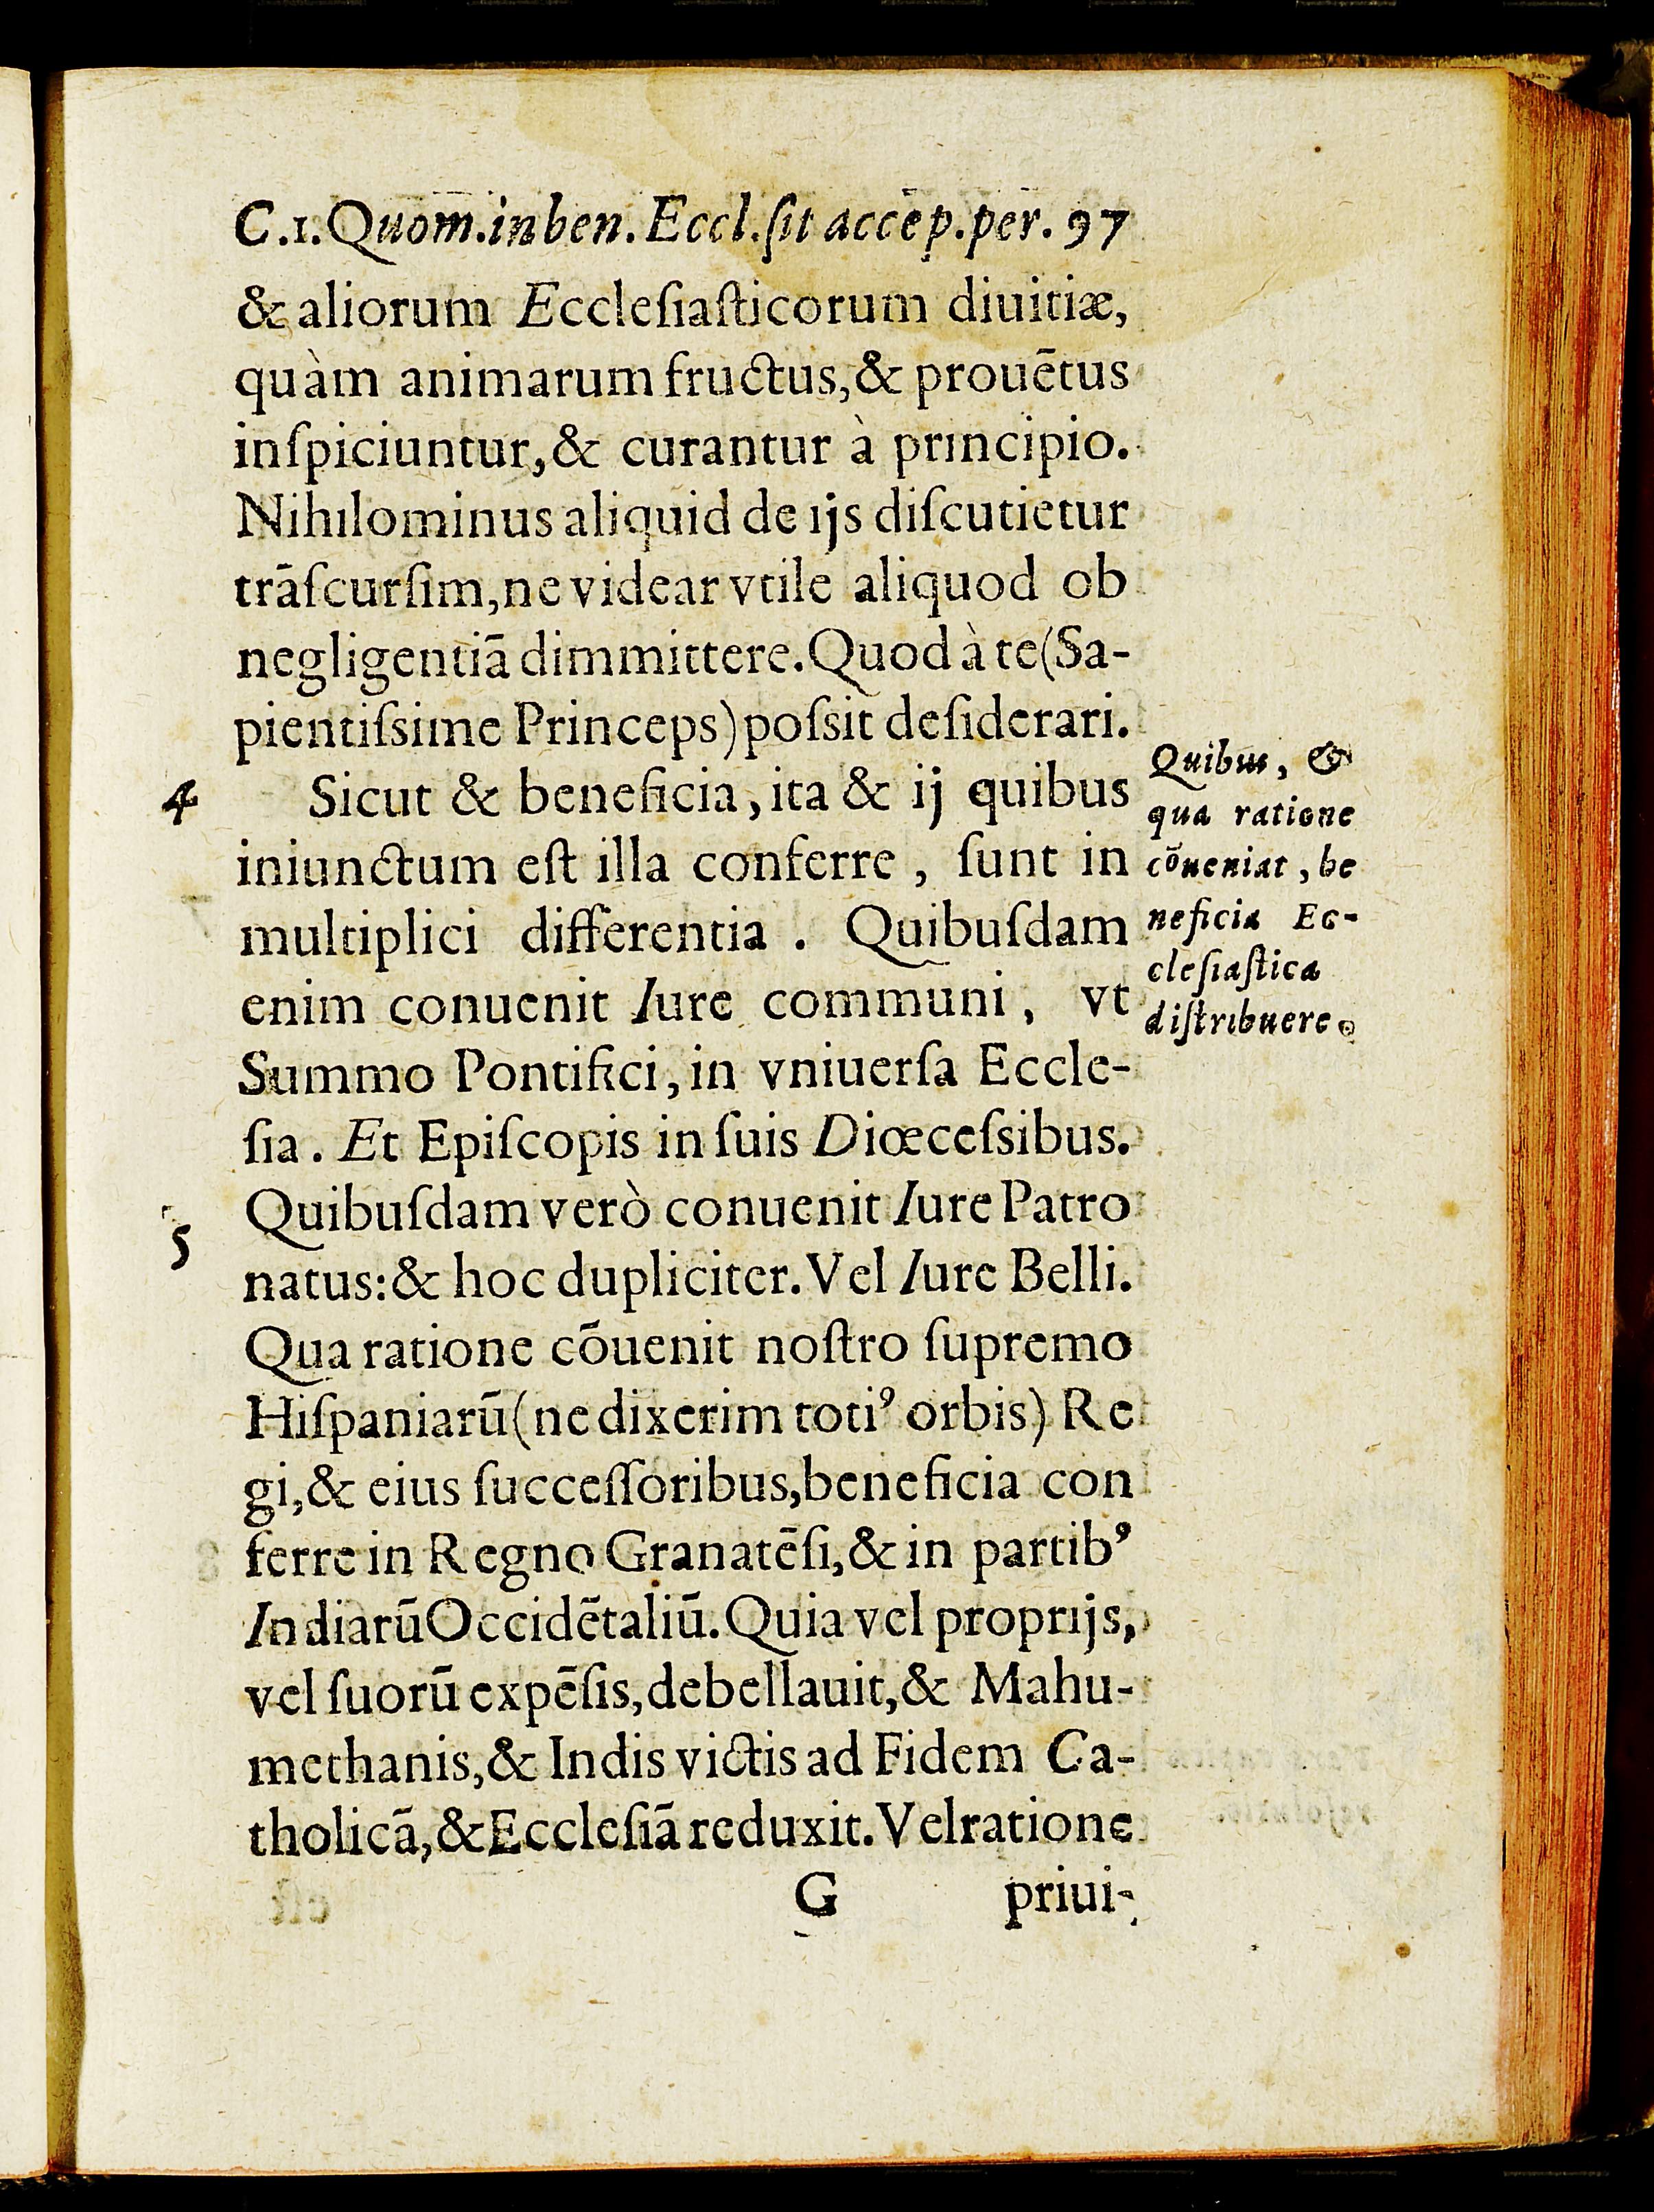 C.1.Quom.in ben.Eccl.ſit accēp.per. 97
& aliorum Eccleſiaſticorum diuitiæ,
quàm animarum fructus,& prouētus
inſpiciuntur,& curantur à principio.
Nihilominus aliquid de ijs diſcutietur
trāſcurſim,ne videar vtile aliquod ob
negligentiā dimmittere.Quod à te(Sa-
pientiſsime Princeps)poſsit deſiderari.
4 Sicut & beneficia, ita & ij quibus
iniunctum eſt illa conferre , ſunt in
multiplici differentia . Quibuſdam
enim conuenit Iure communi, vt
Summo Pontifici, in vniuerſa Eccle-
ſia. Et Epiſcopis in ſuis Diœceſsibus.
5 Quibuſdam verò conuenit Iure Patro
natus:& hoc dupliciter. Vel Iure Belli.
Qua ratione cōuenit noſtro ſupremo
Hiſpaniarū(ne dixerim toti⁹ orbis) Re
gi,& eius ſucceſſoribus,beneficia con
ferre in Regno Granatēſi,& in partib⁹
Indiarū Occidētaliū. Quia vel proprijs,
vel ſuorū expēſis, debellauit,& Mahu-
methanis,& Indis victis ad Fidem Ca-
tholicā,& Eccleſiā reduxit. Vel ratione
G priui-
Quibus, &
qua ratione
cōueniat, be
neficia Ec-
cleſiaſtica
diſtribuere.